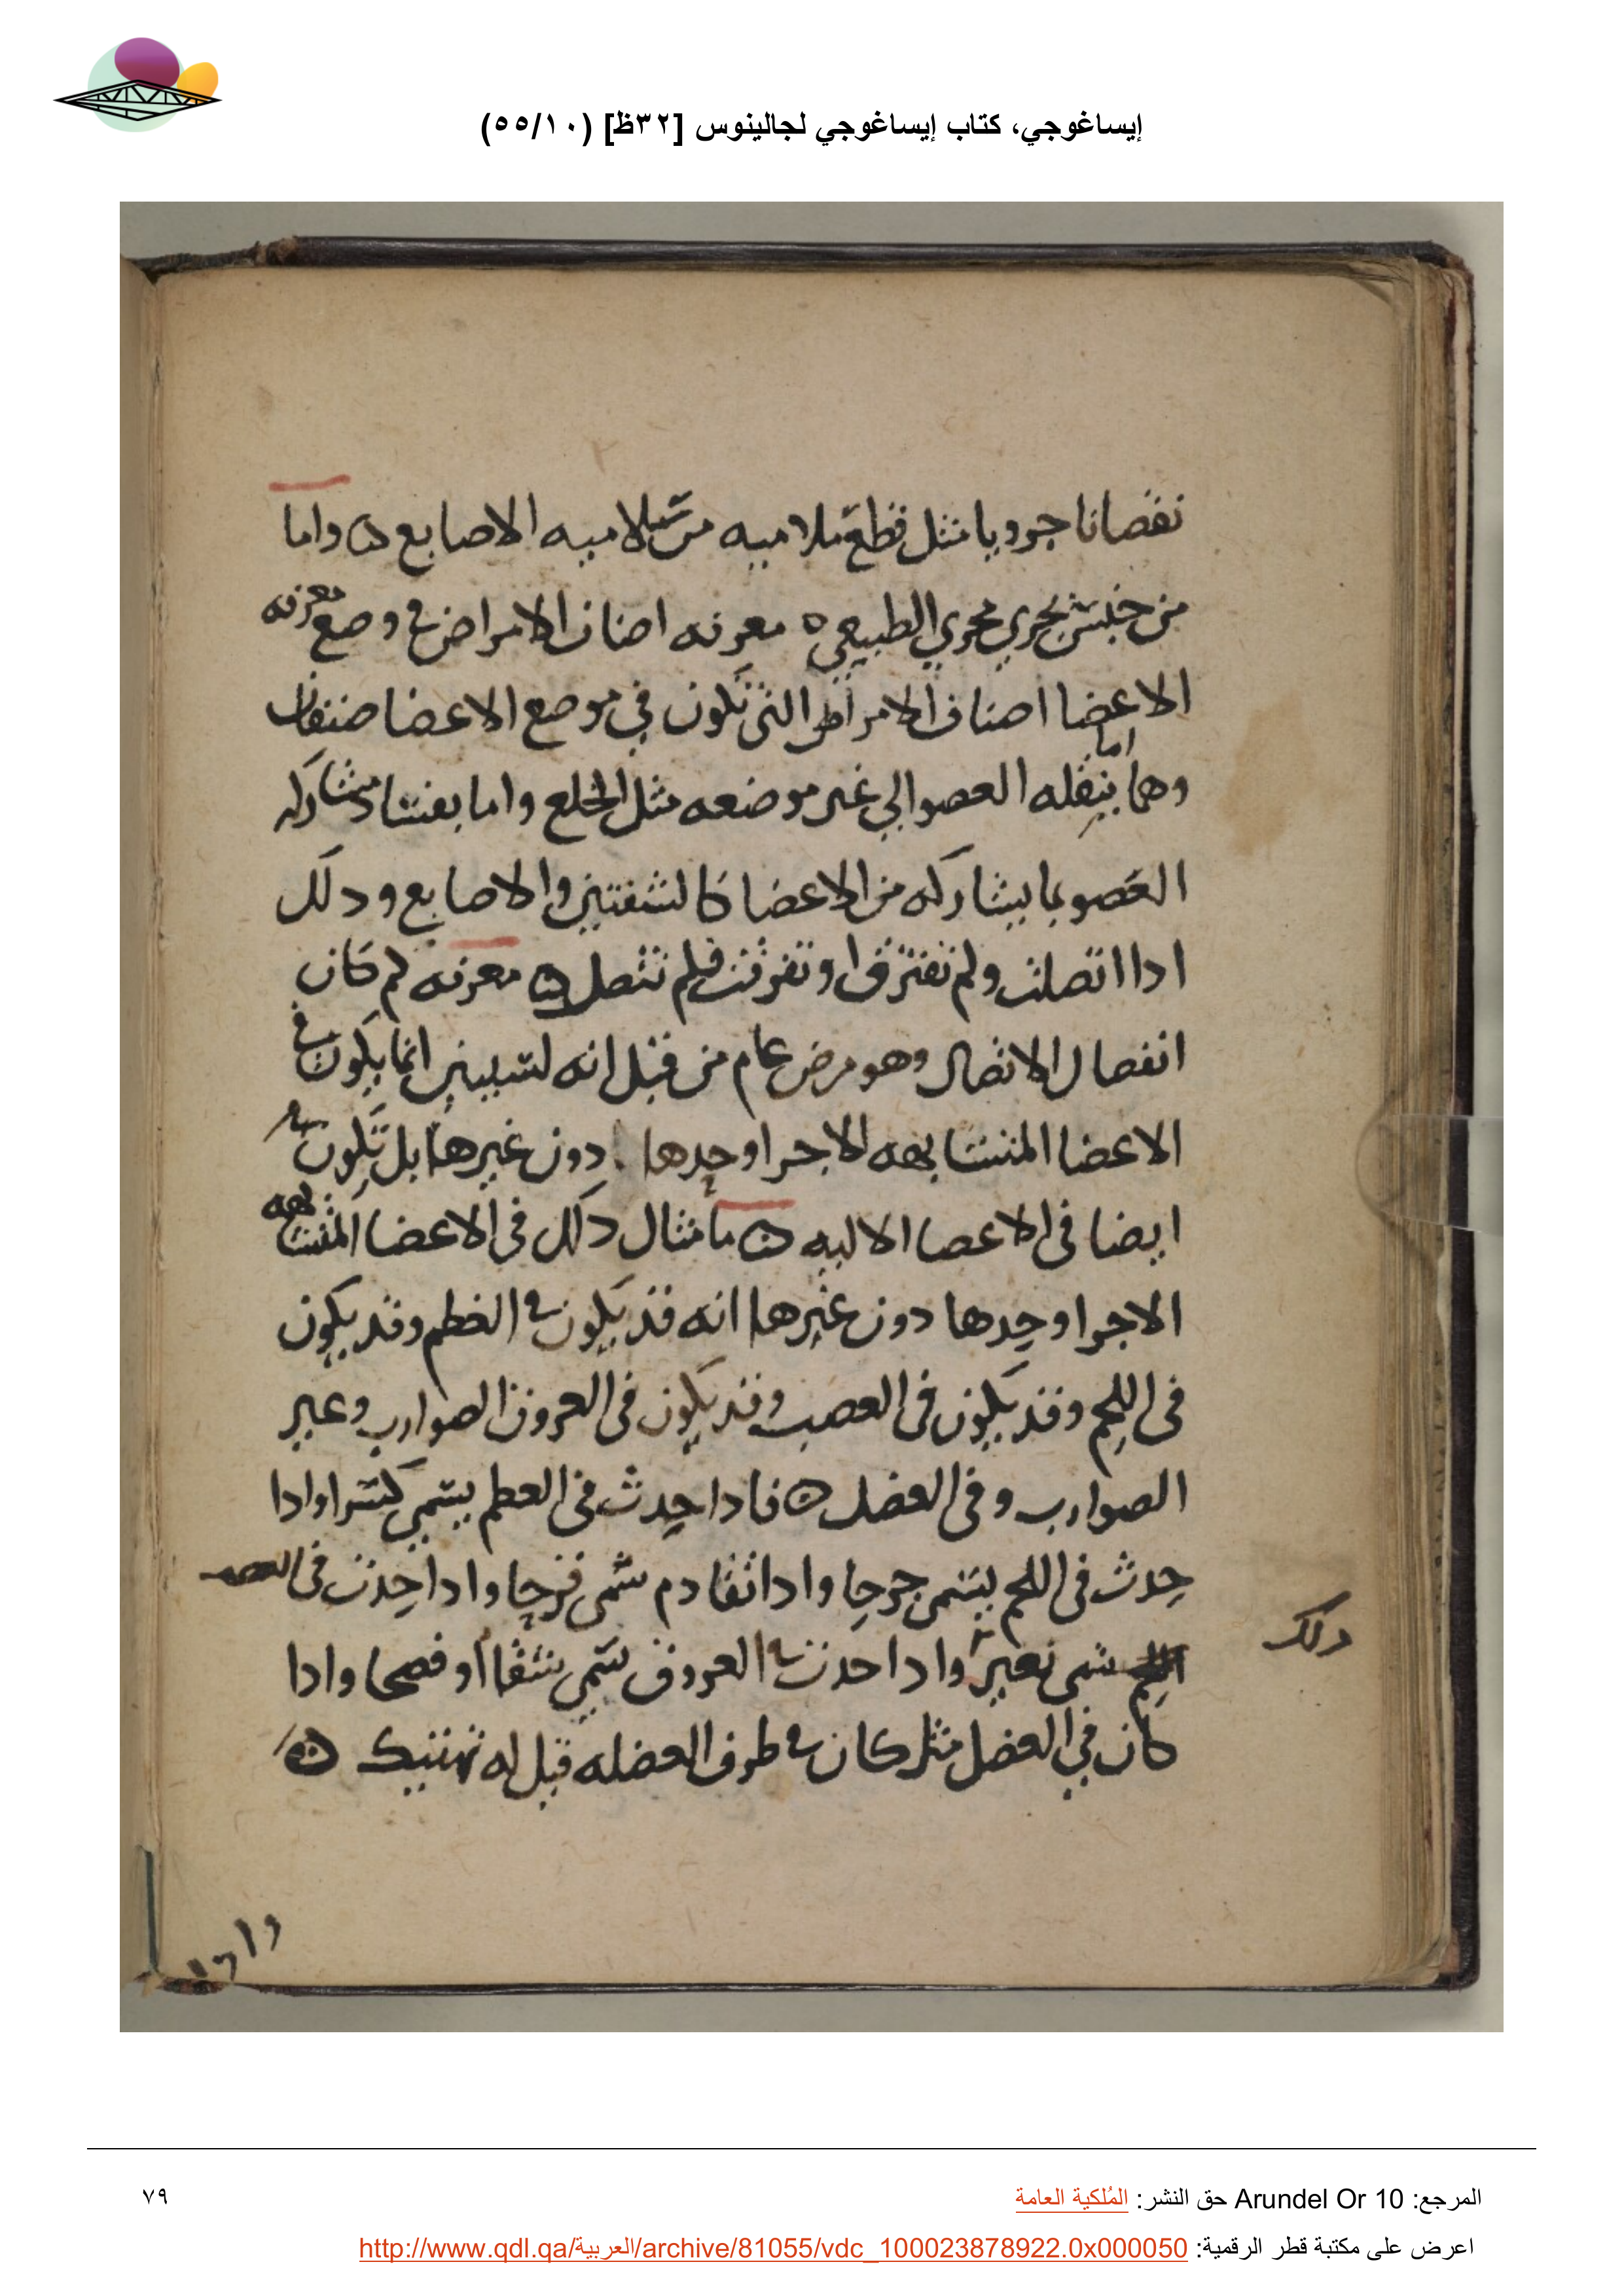 إيساغوجي، كتاب إيساغوجي لجالينوس [٣٢ظ] (٥٥/١٠)
نقصانا جرويا مثل قطع سلاميه من سلاميه الاصابع ه واما
من جنس يجري مجري الطبيعي ه معرفه اصناف الامراض في وضع معرفه
الاعضا اصناف الامراض التي تكون في موضع الاعضا صنفان
وهما اما بنقله العضو الي غير موضعه مثل الخلع واما بفساد مشاركه
العضو بما يشاركه من الاعضا كالشفتين والاصابع ودلك
ادا اتصلت ولم تفترق او تفرقت فلم تتصل ه معرفه لم كان
انفصال الاتصال وهو مرض عام من قبل انه ليس انما يكون في
الاعضا المتشابهه الاجرا وحدها دون غيرها بل تكون
ايضا في الاعصا الاليه ه ما مثال دلك في الاعضا المتشابهه
الاجرا وحدها دون غيرها انه قد يكون في العظم وقد يكون
في اللحم وقد يكون في العصب وقد يكون في العروق الصوارب وعير
الصوارب وفي العضل ه فادا حدث في العطم يسمي كسرا وادا
حدث في اللحم يسمى جرحا وادا تقادم سمى قرحا وادا حدث في العصب
دلك
سمى وادا حدث في العروق سمي شقا او فسحا وادا
كان في العضل مثل كان في طرف العضله قيل له هتك ه
وادا
المرجع: Arundel Or 10 حق النشر: المُلكية العامة
٧٩
اعرض على مكتبة قطر الرقمية: http://www.qdl.qa/العربية/archive/81055/vdc_100023878922.0x000050